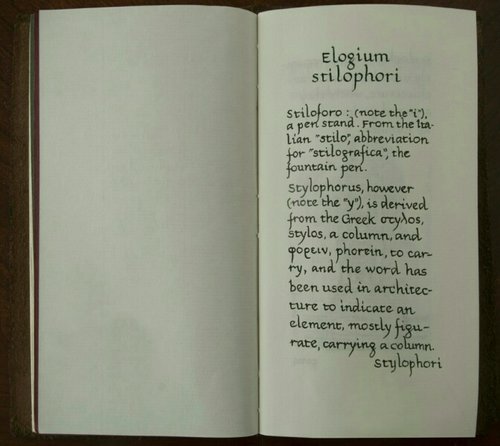 Elogium
stilophori
Stiloforo : (note the "i"),
a pen stand. From the Ita-
lian "stilo", abbreviation
for "stilografica", the
fountain pen.
Stylophorus, however
(note the "y"), is derived
from the Greek στυλος,
stylos, a column, and
φορειν, phorein, to car-
ry, and the word has
been used in architec-
ture to indicate an
element, mostly figu-
rate, carrying a column.
Stylophori